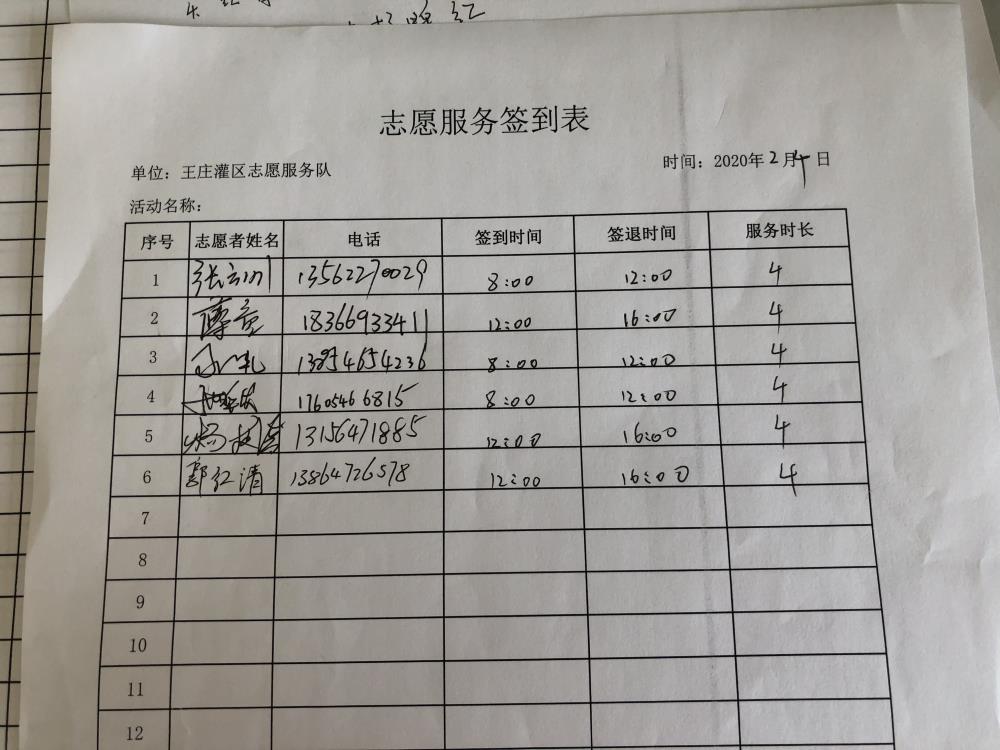 红
志愿服务签到表
单位：王庄灌区志愿服务队 时间：2020年2月4日
活动名称：
序号 志愿者姓名 电话 签到时间 签退时间 服务时长
1 13562270029 8:00 12:00 4
2 18366933411 12:00 16:00 4
3 13854654236 8:00 12:00 4
4 17605466815 8:00 12:00 4
5 13156471885 12:00 16:00 4
6 郭红清 13864726578 12:00 16:00 4
7
8
9
10
11
12